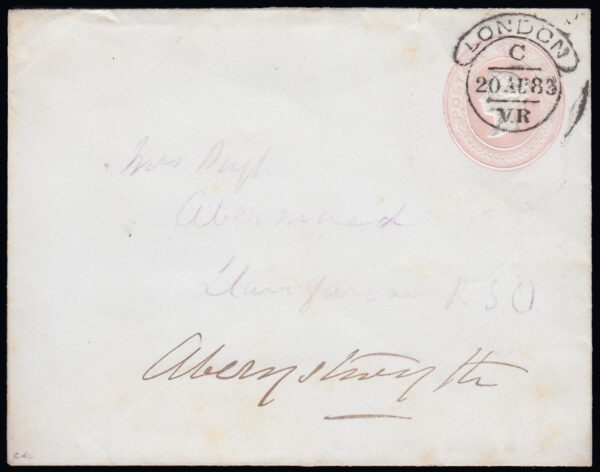 LONDON
C
20 AU 83
V.R
POST
Mrs Pugh
Abermaed
Llanfarian R S O
Aberystwyth